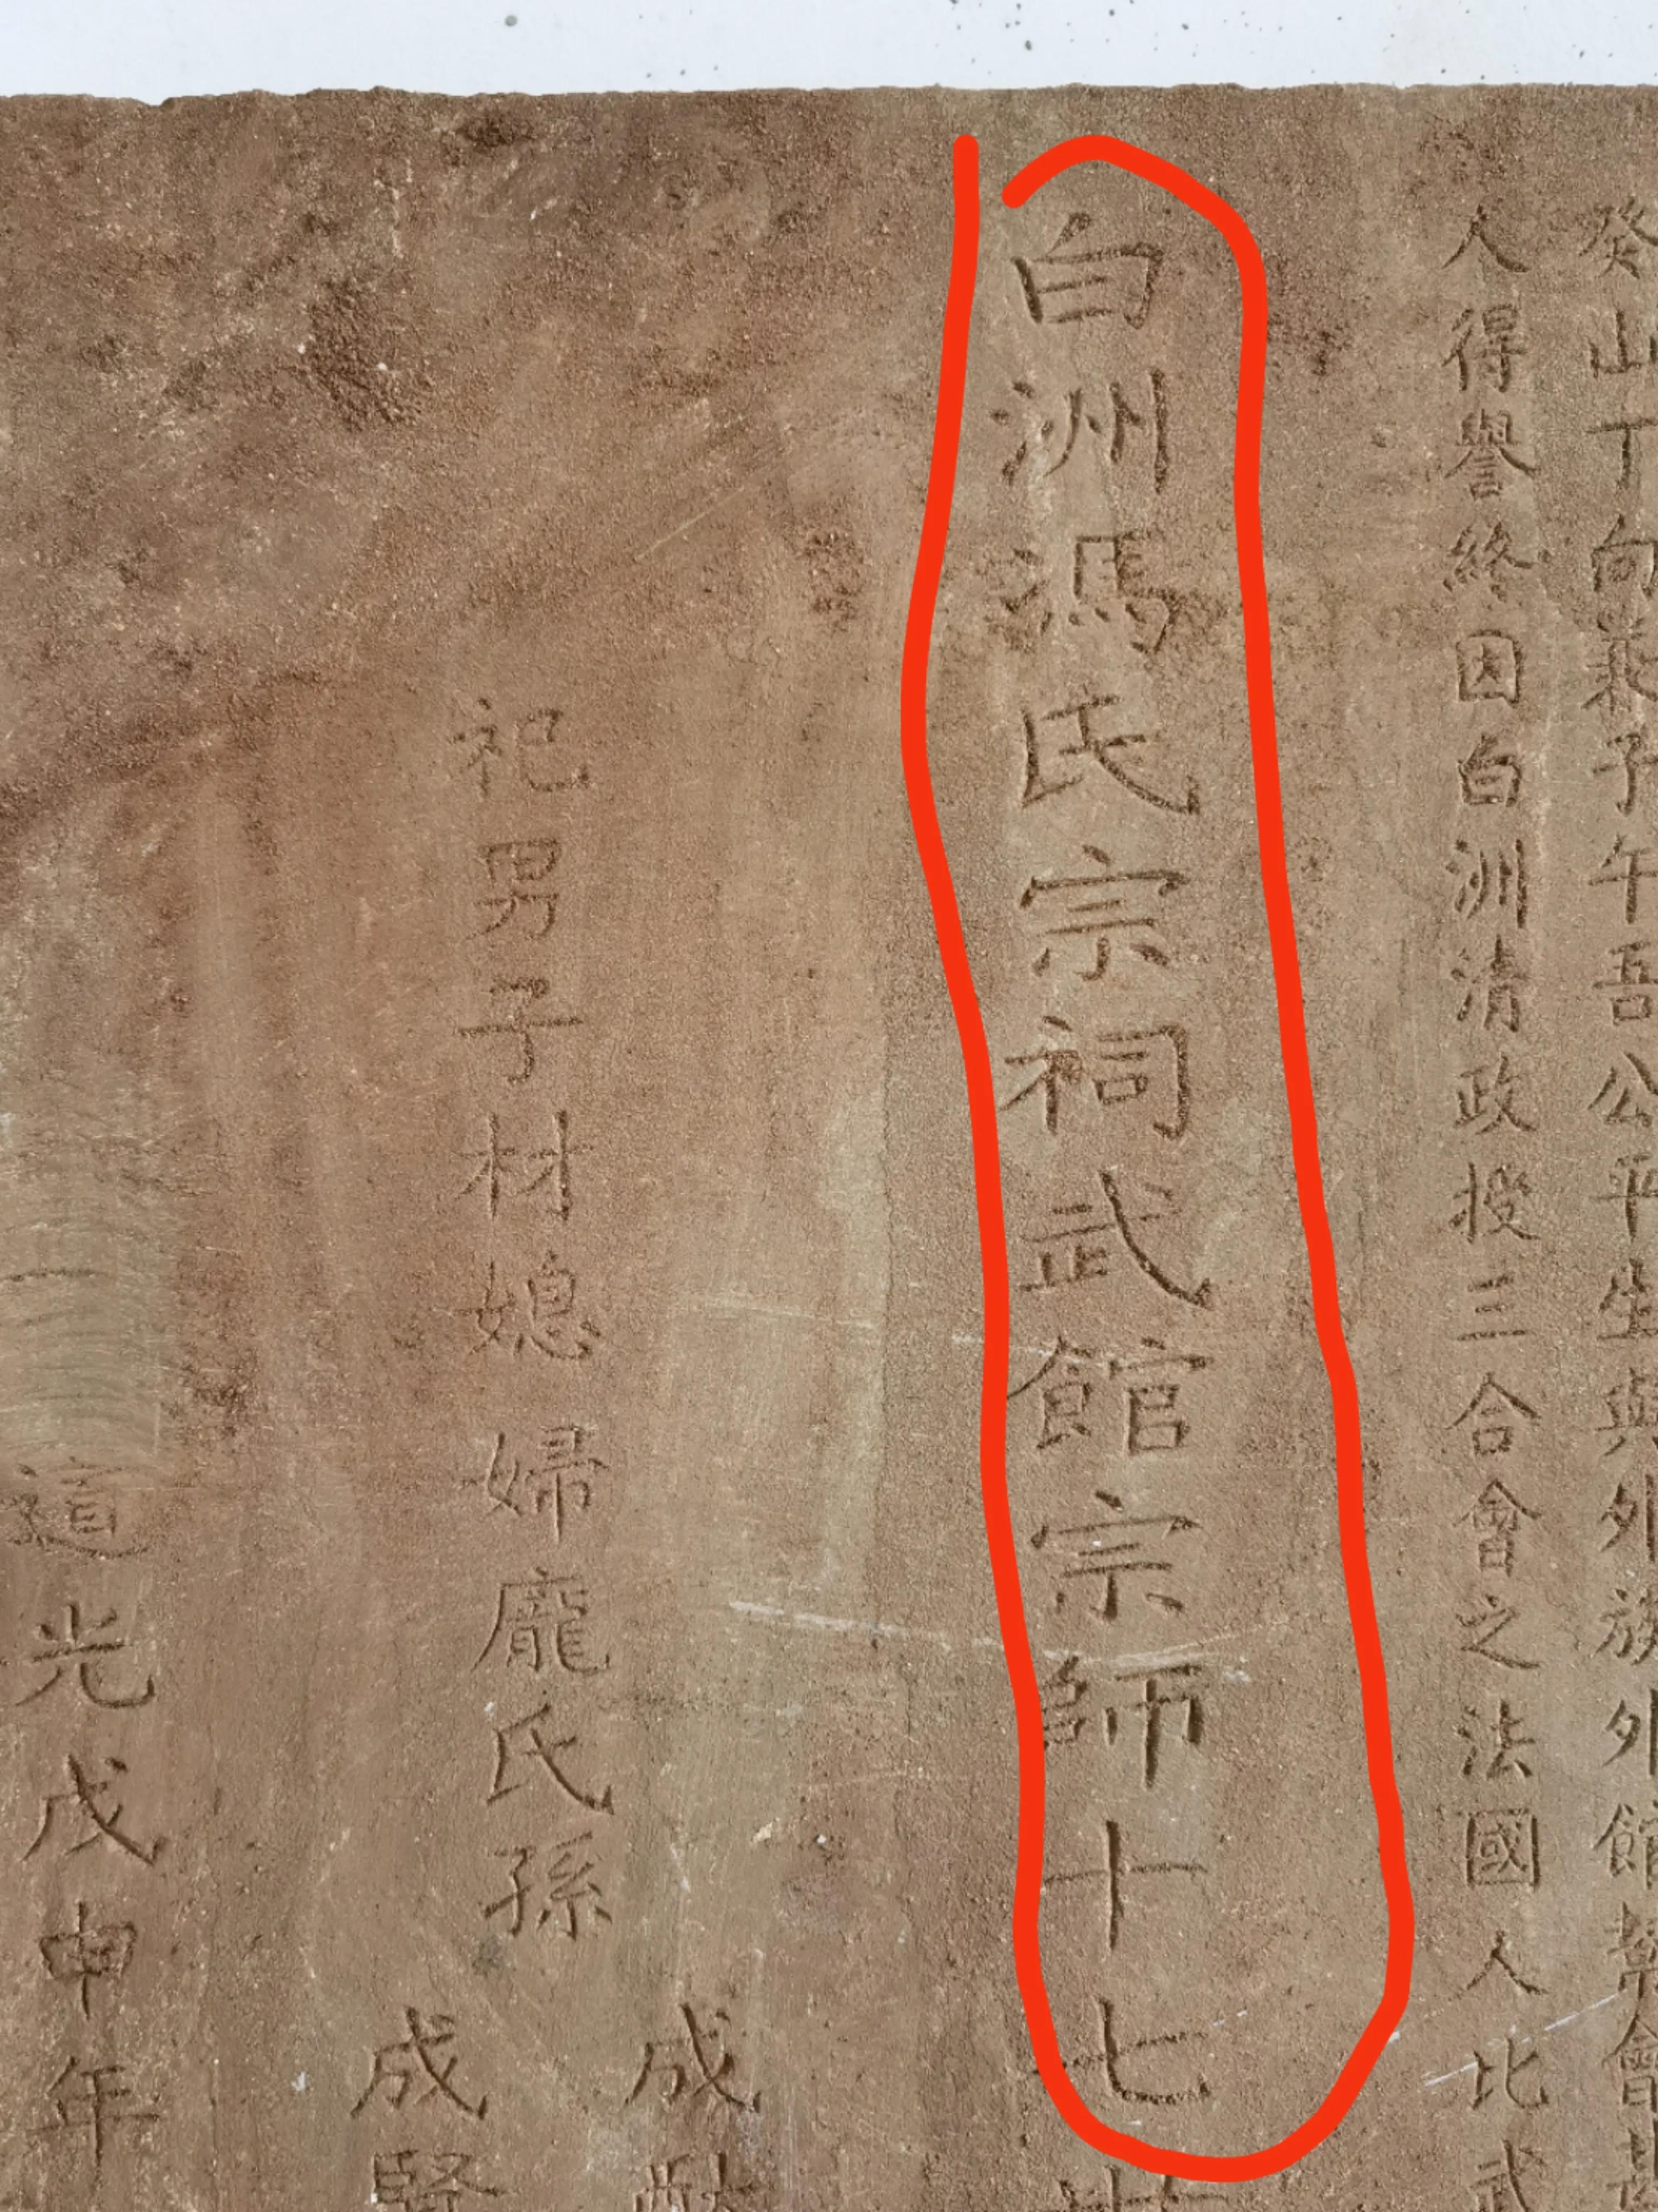 癸山丁向兼子午吾公平生與外族外館幫會
人得譽終因白洲清政授三合會之法國人比武
白洲馮氏宗祠武館宗師十七
成
祀男子材媳婦龐氏孫
成賢
道光戊申年